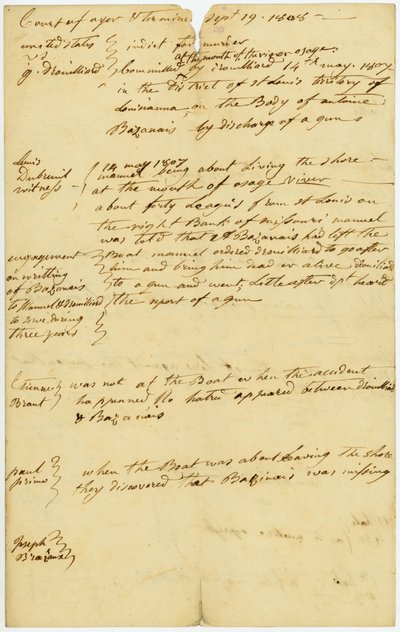 Court of oyer & terminer Sept 19. 1808
united states } indict for murder
at the mouth of the river osage
g. Drouilliard } Committed by Drouilliard 14th may. 1807
in the district of st Louis territory of
Louisianna, on the Body of antoine
Bazanais, by discharge of a gun
Louis
Dubreuil
witness
14 may 1807
manuel being about Living the shore
at the mouth of osage river
about forty Leagues from st Louis on
the right Bank of missouri manuel
was told that Bazanais had left the
Boat manuel ordered drouilliard to go after
him and bring him dead or alive drouilliard
to a gun and went, Little after dpt heard
the report of a gun
engagement
in writting
of Bazanais
to Manuel & drouilliard
to serve during
three years
Etienne
Brant
was not at the Boat when the accident
happenned No hatred appeared between drouilliard
& Bazanais
paul
primo
when the Boat was about Leaving the shore
they discovered that Bazinais was missing
Joseph
Brazeaux